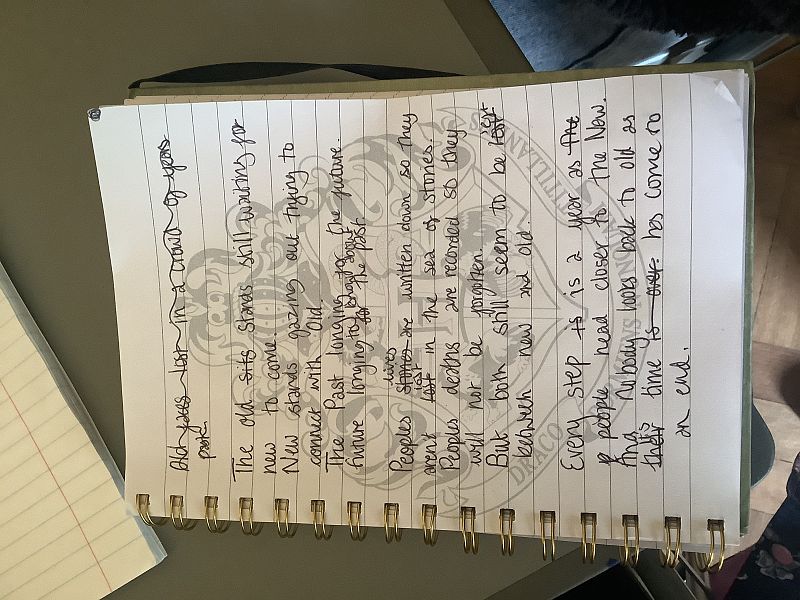 Old years lost in a crowd of years
past
The old sits stands still waiting for
new to come
New stands gazing out trying to
connect with Old
The Past longing for the future.
future longing to know about
for the past
lives
Peoples stories are written down so they
lost
arent lost in the sea of stories.
Peoples deaths are recorded so they
will not be forgotten
But both still seem to be lost
between new and old.
Every step is is a year as the
people head closer to the New.
And Nobody looks back to old as
this
their time is over. has come to
an end.
DRACO DORMIENS NUNQUAM TITILLANDUS